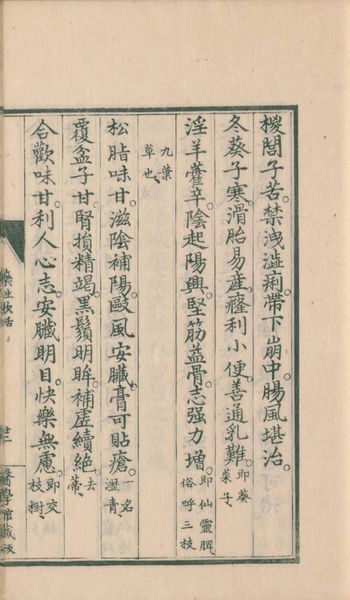 椶櫚子苦。禁洩澁痢。帶下崩中。腸風堪治。
冬葵子寒。滑胎易産。癃利小便。善通乳難。即葵菜子。
淫羊藿辛。陰起陽興。堅筋益骨。志强力增。即仙靈脾俗呼三枝
九葉草也。
松脂味甘。滋陰補陽。敺風安臟。膏可貼瘡。一名瀝青
覆盆子甘。腎損精竭。黒鬚明眸。補虛續絶。去蒂。
合歡味甘。利人心志。安臟明目。快樂無慮。即交枝樹
醫學館藏板